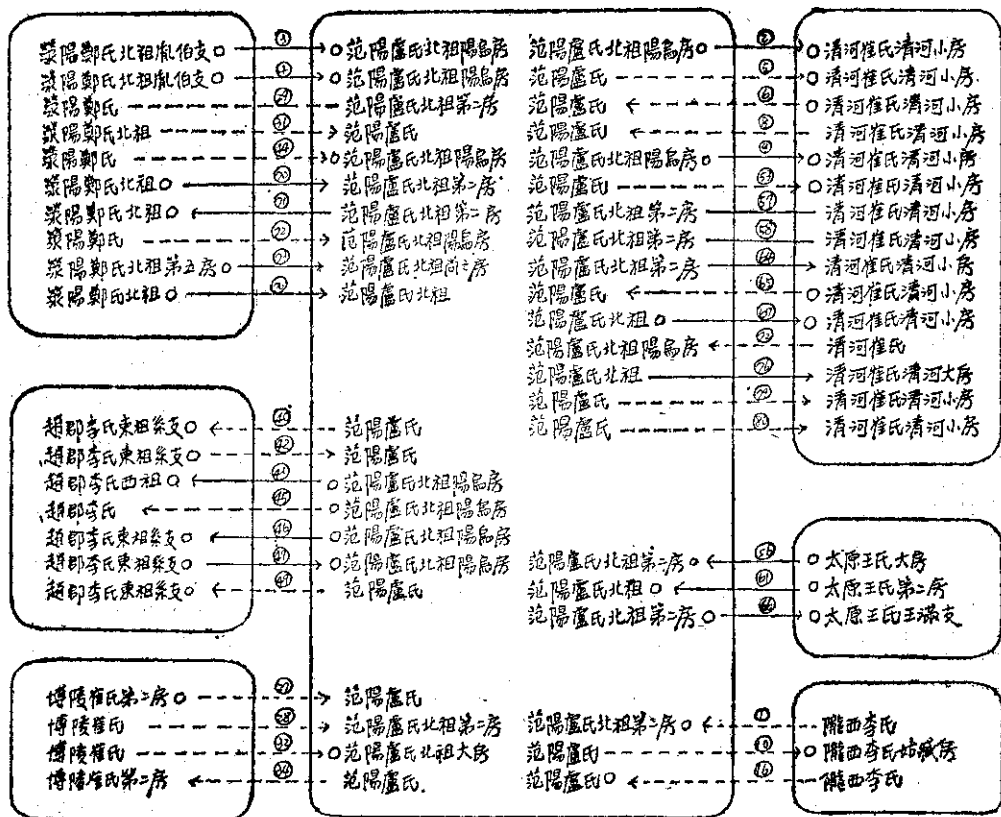 滎陽鄭氏北祖胤伯支 ③ 范陽盧氏北祖陽烏房
滎陽鄭氏北祖胤伯支 范陽盧氏北祖陽烏房
滎陽鄭氏 范陽盧氏北祖第二房
滎陽鄭氏北祖 范陽盧氏
滎陽鄭氏 范陽盧氏北祖陽烏房
滎陽鄭氏北祖 范陽盧氏北祖第二房
滎陽鄭氏北祖 范陽盧氏北祖第二房
滎陽鄭氏 范陽盧氏北祖陽烏房
滎陽鄭氏北祖第五房 范陽盧氏北祖房
滎陽鄭氏北祖 范陽盧氏北祖
趙郡李氏東祖系支 范陽盧氏
趙郡李氏東祖系支 ㊷ 范陽盧氏
趙郡李氏西祖 范陽盧氏北祖陽烏房
趙郡李氏 ㊺ 范陽盧氏北祖陽烏房
趙郡李氏東祖系支 ㊻ 范陽盧氏北祖陽烏房
趙郡李氏東祖系支 范陽盧氏北祖陽烏房
趙郡李氏東祖系支 范陽盧氏
博陵崔氏第二房 范陽盧氏
博陵崔氏 范陽盧氏北祖第二房
博陵崔氏 范陽盧氏北祖大房
博陵崔氏第二房 范陽盧氏
范陽盧氏北祖陽烏房 清河崔氏清河小房
范陽盧氏 ⑤ 清河崔氏清河小房
范陽盧氏 ⑥ 清河崔氏清河小房
范陽盧氏 清河崔氏清河小房
范陽盧氏北祖陽烏房 清河崔氏清河小房
范陽盧氏 清河崔氏清河小房
范陽盧氏北祖第二房 清河崔氏清河小房
范陽盧氏北祖第二房 清河崔氏清河小房
范陽盧氏北祖第二房 清河崔氏清河小房
范陽盧氏 清河崔氏清河小房
范陽盧氏北祖 清河崔氏清河小房
范陽盧氏北祖陽烏房 清河崔氏
范陽盧氏北祖 清河崔氏清河大房
范陽盧氏 清河崔氏清河小房
范陽盧氏 清河崔氏清河小房
范陽盧氏北祖第二房 太原王氏大房
范陽盧氏北祖 太原王氏第二房
范陽盧氏北祖第二房 太原王氏王滿支
范陽盧氏北祖第二房 ① 隴西李氏
范陽盧氏 ⑩ 隴西李氏姑臧房
范陽盧氏 ⑯ 隴西李氏